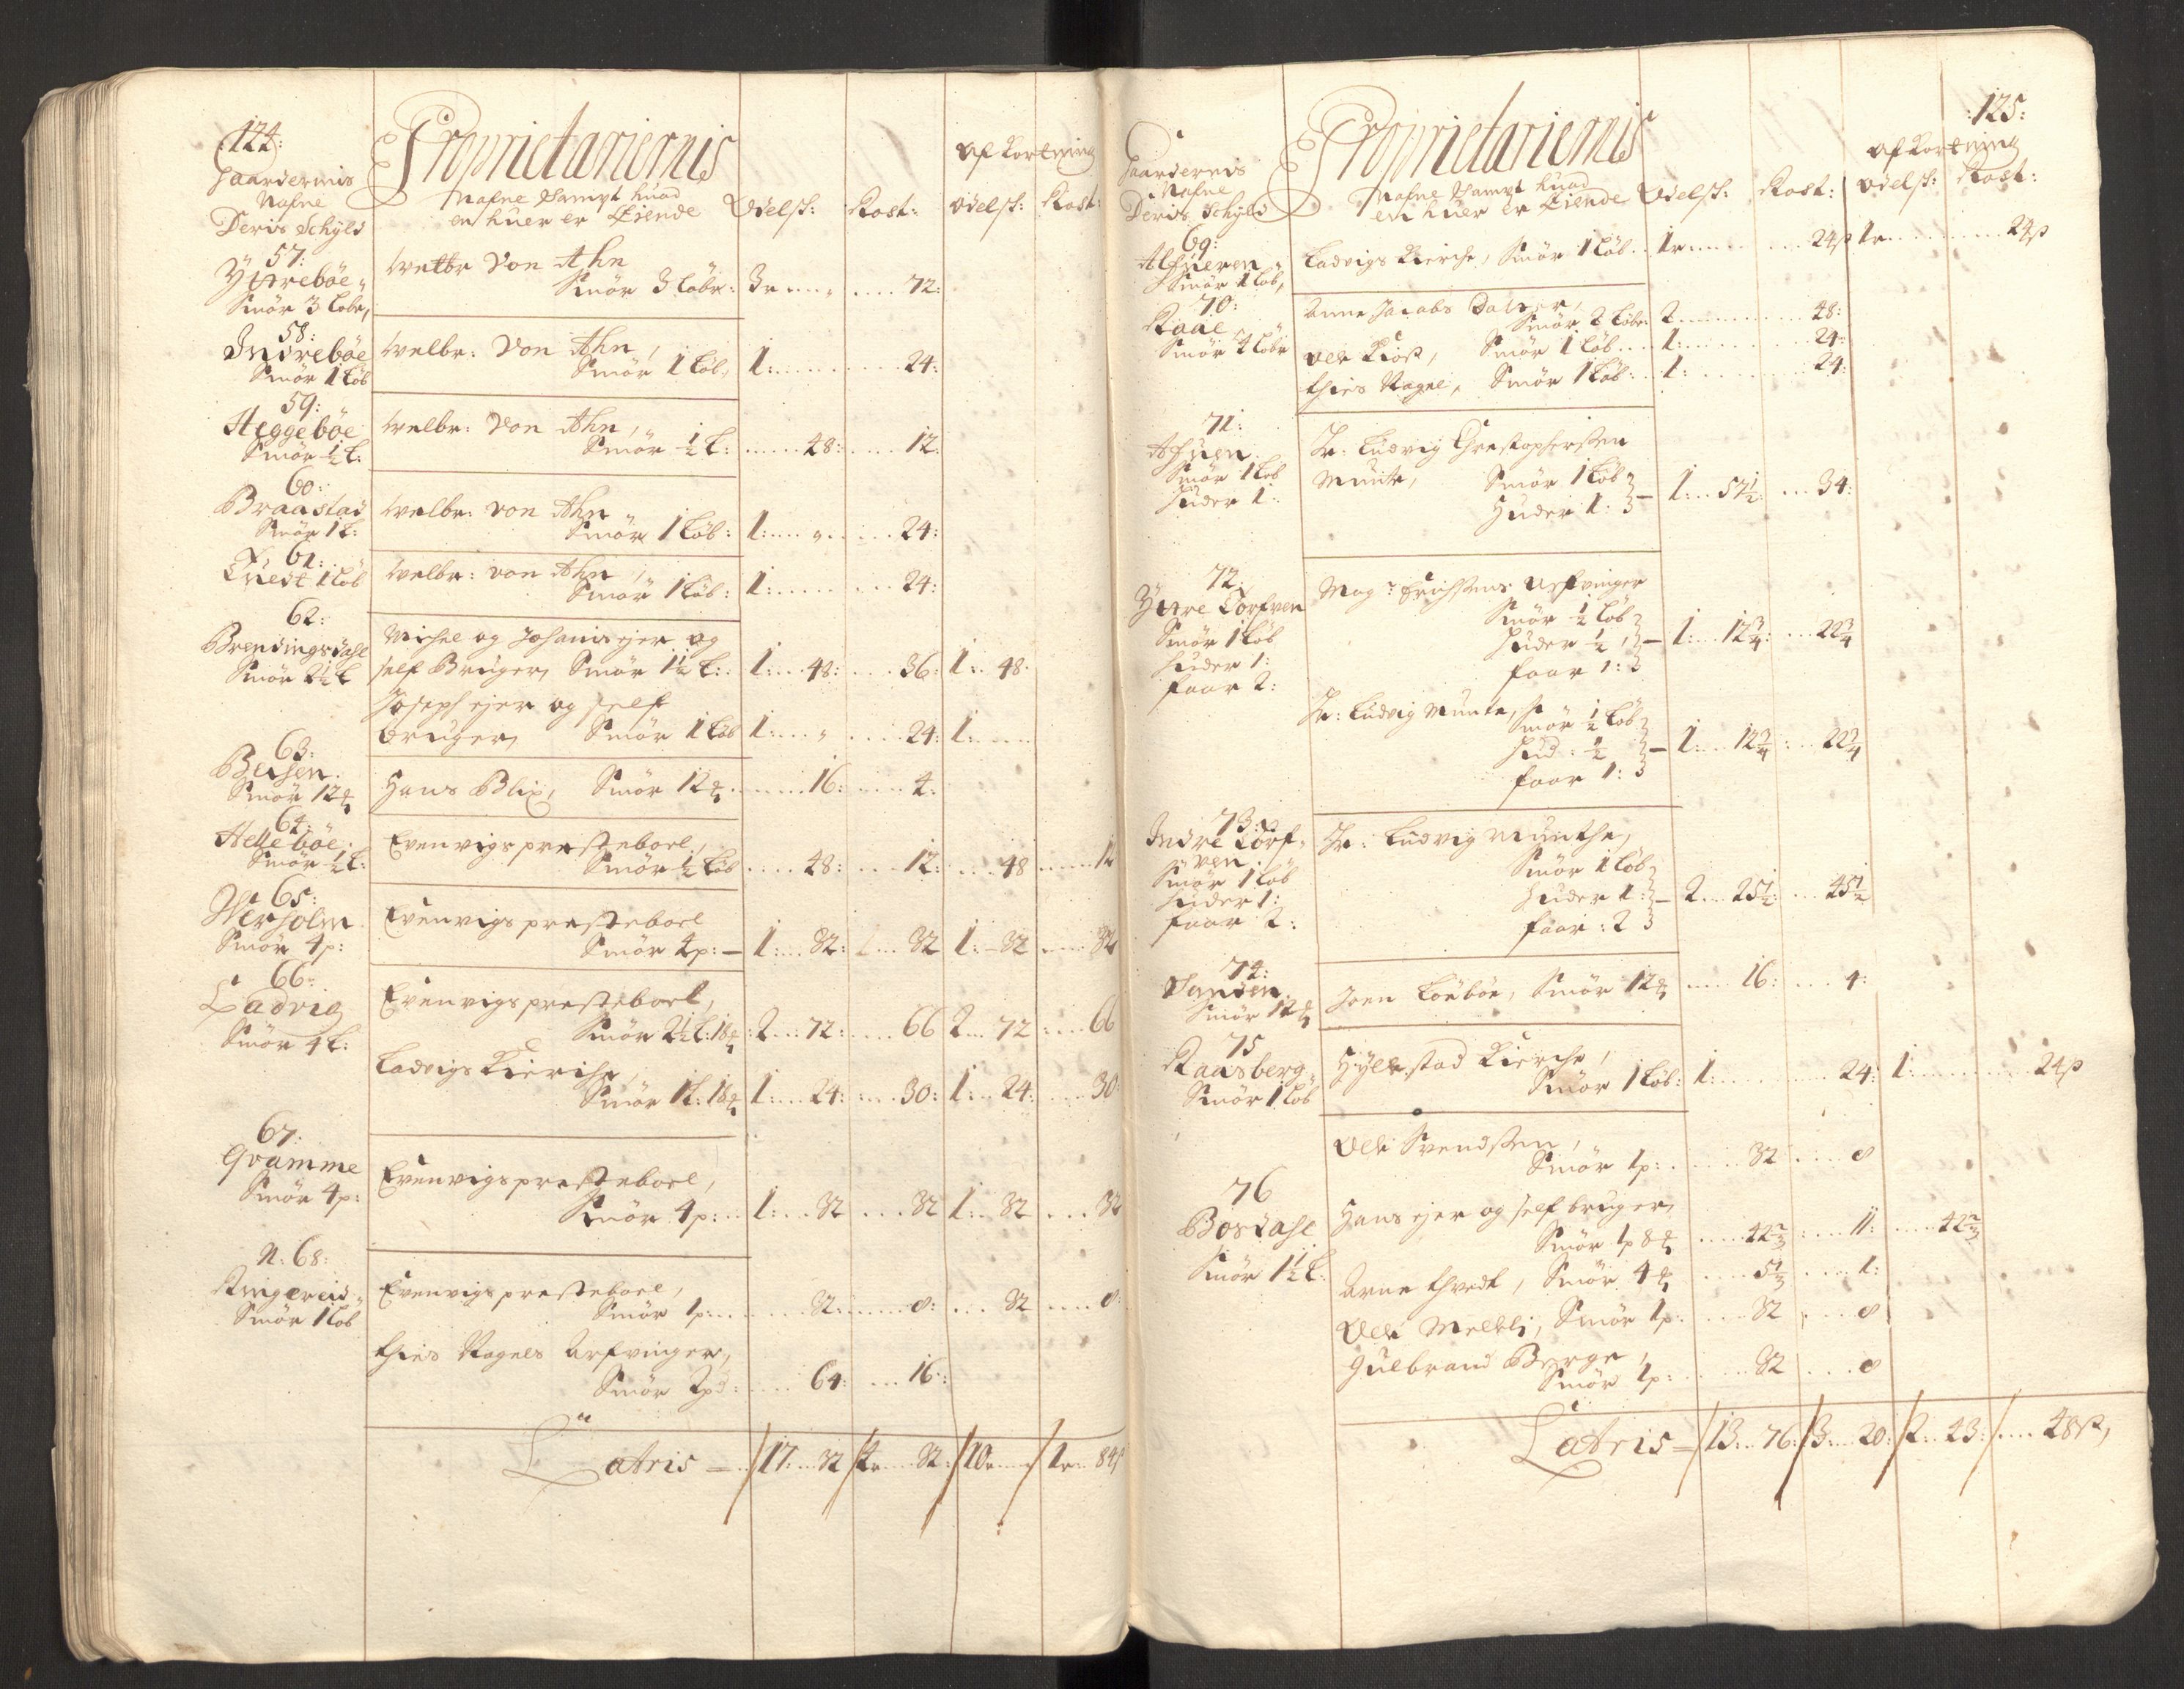 124:
Gaardernis
Nafne
Deris Schyld
Proprietariernis
Nafne Sampt huad
en huer er Eiende
Odelsk:
Rost:
Afkortning
Odelsk: Rost:
57:
Ÿttrebøe
Smør 3 løbe,
welbr Von Ahn
Smør 3 løbr: 3r .... 72:
58:
Indrebøe
Smør 1 løb
welbr: Von Ahn,
Smør 1 løb, 1: .... 24:
59:
Heggebøe
Smør ½ l:
welbr: Von Ahn,
Smør ½ l: .... 48: .... 12:
60:
Braastad
Smør 1 l:
welbr: von Ahn
Smør 1 løb: 1: .... 24:
61:
Quest 1 løb
welbr: von Ahn,
Smør 1 løb: 1: .... 24:
62:
Brendingsdahl
Smør 2½ l
Michel og Johanis ejer og
self Bruger, Smør 1½ l: 1: .. 48: ... 36: 1: 48:
Joseph ejer og self
bruger, Smør 1 løb 1: .... 24: 1: ....
63:
Smør 12 ℔
Hans Blix, Smør 12 ℔ .... 16: .... 4:
64:
Hellebøe
Smør ½ l:
Evenvigs presteboel,
Smør ½ løb .... 48: ... 12: ... 48 .... 12
65:
Werholm
Smør 4 p:
Evenvigs presteboel
Smør 4 p: 1: ... 32: ... 32 1: 32 .... 32
66:
Ladvig
Smør 4 l:
Evenvigs presteboel,
Smør 2½ l: 18 ℔ 2 ... 72: ... 66 2 ... 72 .... 66
Ladvigs Kierche,
Smør 1 l: 18 ℔ 1: ... 24: .... 30: 1: .. 24: .... 30
67:
Qvamme
Smør 4 p:
Evenvigs presteboel,
Smør 4 p: 1: ... 32 ... 32 1: .. 32 .... 32
N: 68:
Ringereid
Smør 1 løb
Evenvigs presteboel,
Smør 1 p: .... 32: .... 8: ... 32 .... 8
Thies Nagels Arfvinger,
Smør 2 pd: .... 64: ... 16:
Latris — / 17: .. 32 / 4r .. 32: / 10r .... / 1r: 84
:125:
Gaardernis
Nafne
Deris Schyld
Proprietariernis
Nafne Sampt huad
en huer er Eiende
Odelsk: Rost:
Afkortning
Odelsk: Rost:
69:
Alfueren
Smør 1 løb,
Ladvigs Kierche, Smør 1 løb .. 1r .... 24 ß 1r .... 24 ß
70:
Smør 4 løbr
Anne Jacobs Datter,
Smør 2 løbr: 2 .... 48:
Smør 1 løb ... 1: .... 24:
Thies Nagel, Smør 1 løb: .. 1: .... 24:
71:
Smør 1 løb
Huder 1:
Hr: Ludvig Christophersen
Munte, Smør 1 løb
Huder 1: — 1: .. 57½: ... 34:
72:
Ÿttre Torfven
Smør 1 løb
Huder 1:
faar 2:
Mag: Erichsens Arfvinger
Smør ½ løb
Huder ½,
faar 1: — 1: ... 12¾: ... 22¾
Hr: Ludvig Munte, Smør ½ løb
Hud: ½
faar 1: — 1: .. 12¾ ... 22¾
73:
Indre Torf-
ven
Smør 1 løb
Huder 1:
faar 2:
Hr: Ludvig Munthe,
Smør 1 løb
Huder 1:
faar: 2 — 2 ... 25½: ... 45½
74:
Sanden
Smør 12 ℔
Joen Løebøe, Smør 12 ℔ .... 16: .... 4:
75
Raasberg
Smør 1 løb
Hÿllestad Kierche,
Smør 1 løb: 1: .... 24: 1: .... 24 ß
76
Bosdahl
Smør 1½ l:
Olle Svendsen,
Smør 1 p: .... 32 .... 8
Hans ejer og self bruger,
Smør 1 p 8 ℔ .... 42⅔: ... 11: .... 42⅔
Arne Thredt, Smør 4 ℔ .... 5⅓ .... 1:
Olle Melkli, Smør 1 p: .... 32 .... 8
Gulbrand Berge,
Smør 1 p: .... 32 ... 8
Latris — / 13: .. 76: / 3: .. 20: / 2 .. 43: / .... 48 ß,